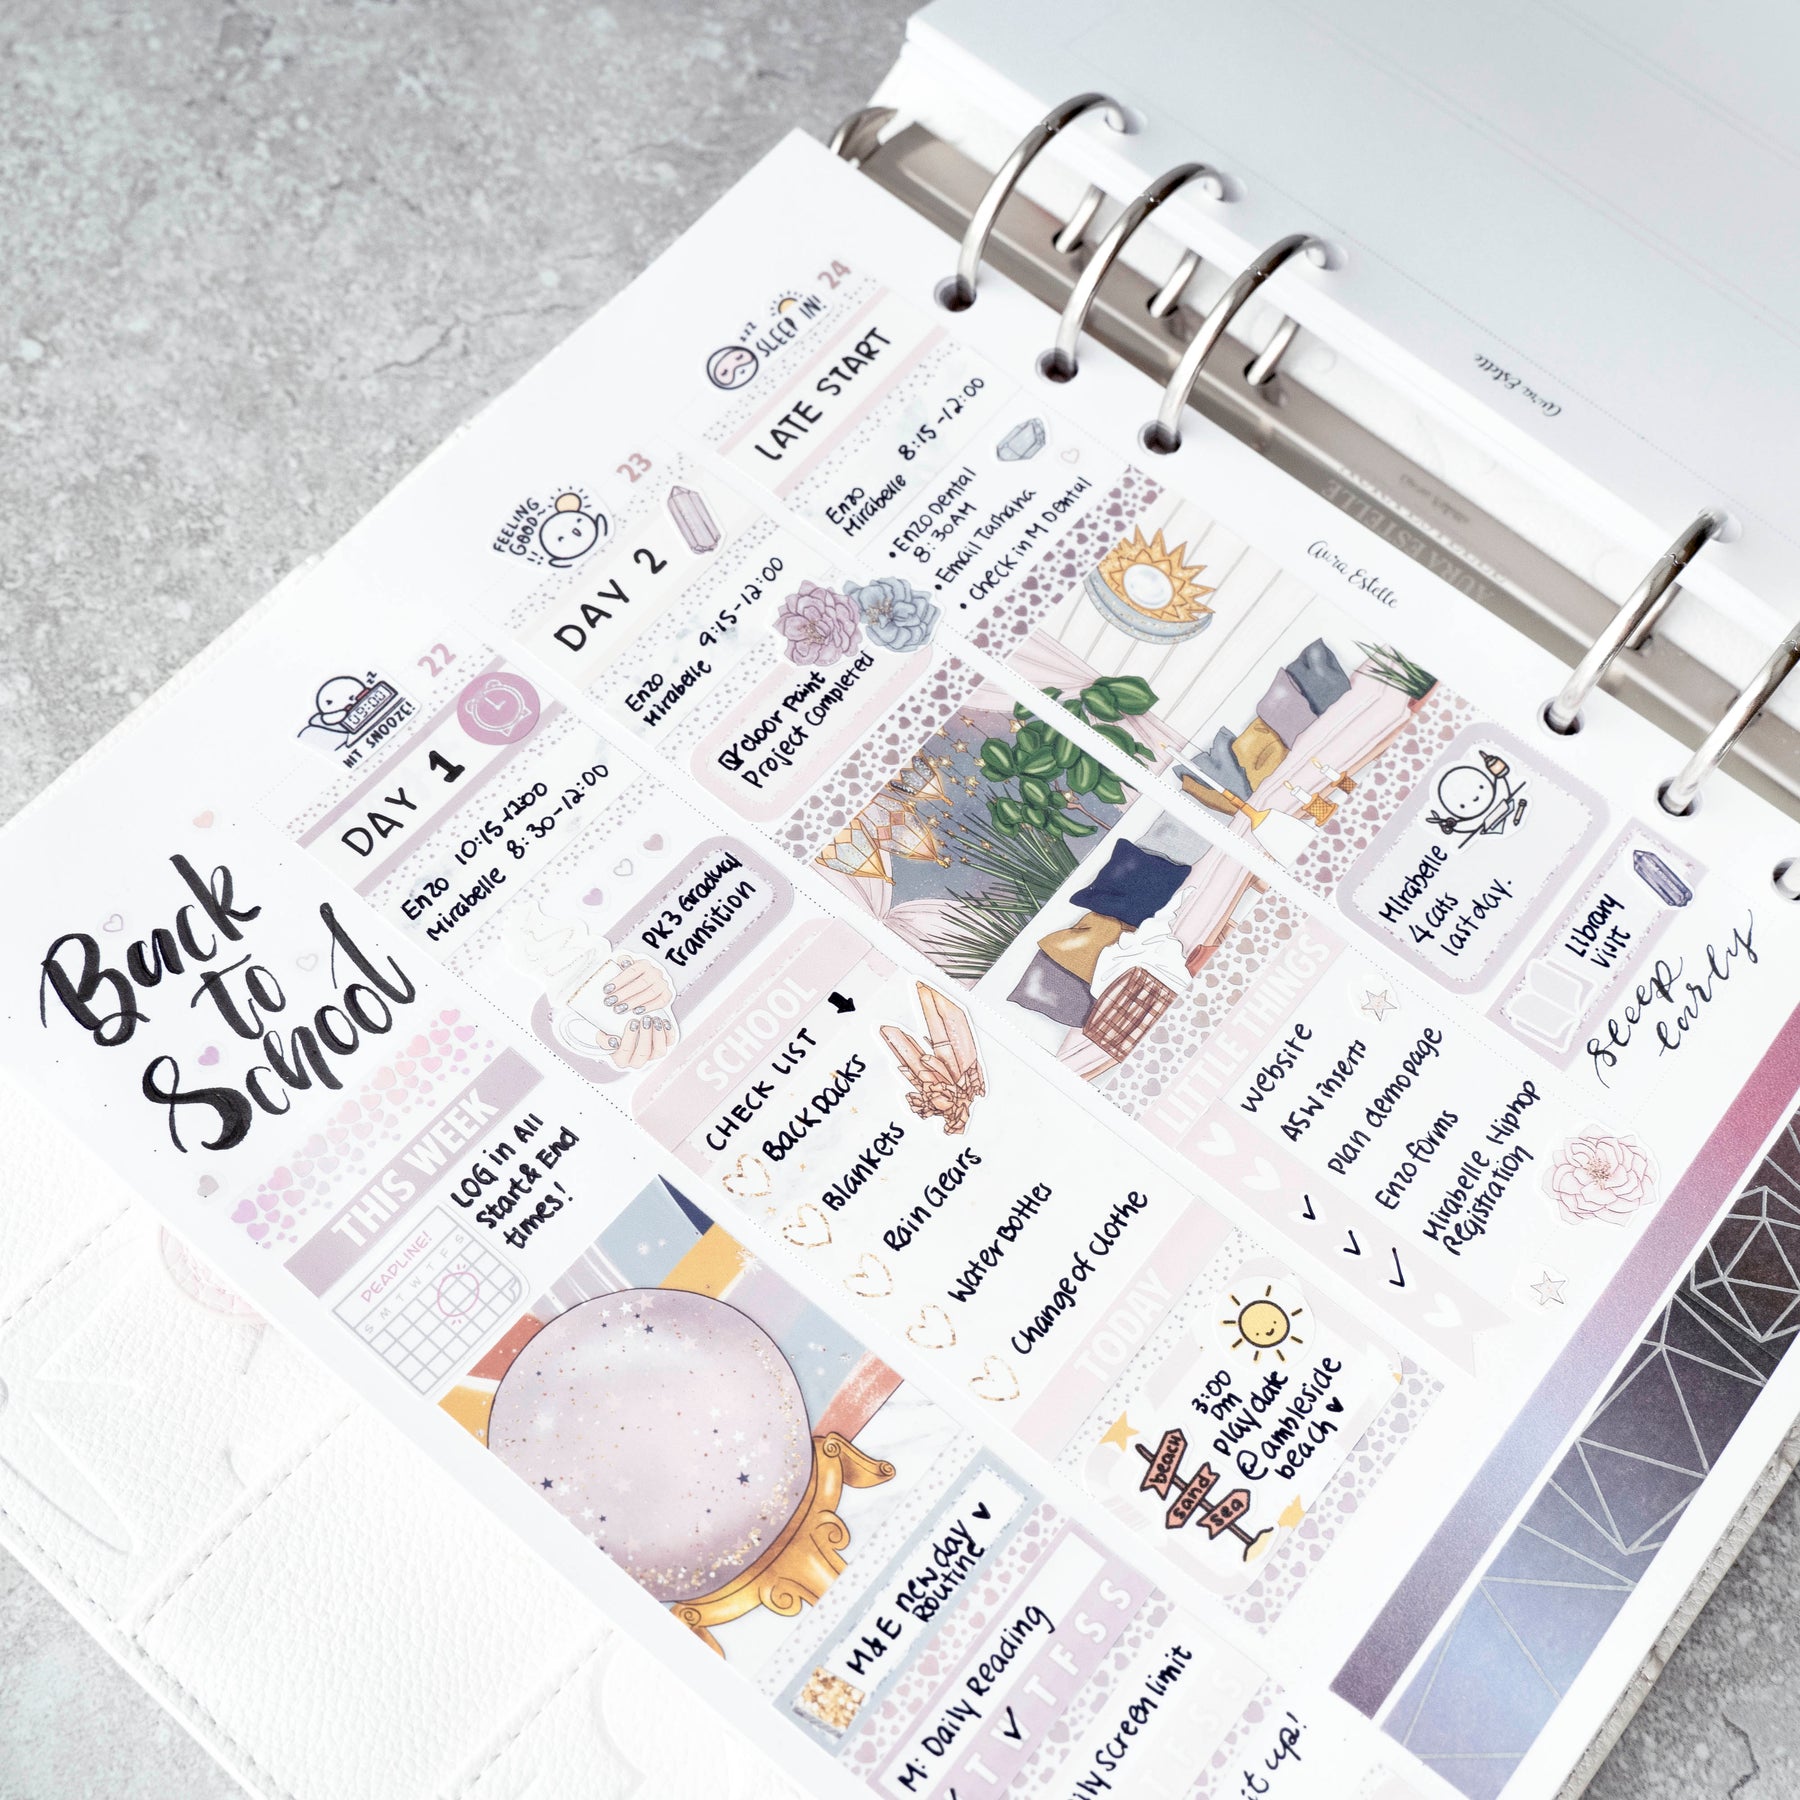 Back
to
School
THIS WEEK
DEADLINE!
S M T W T F S
LOG in All
Start & End
times!
M & E new day
Routine
22
HIT SNOOZE!
09:00
DAY 1
Enzo 10:15-12:00
Mirabelle 8:30-12:00
PK3 Gradual
Transition
SCHOOL
CHECK LIST
Backpacks
Blankets
Rain Gears
Water Bottles
Change of clothe
TODAY
M: Daily Reading
T W T F S S
Screen limit
23
FEELING
GOOD~
!!
DAY 2
Enzo
Mirabelle 9:15-12:00
door paint
Project Completed
24
zzz
SLEEP IN!
LATE START
Enzo
Mirabelle 8:15-12:00
• Enzo Dental
8:30AM
• Email Tashana
• check in M Dental
LITTLE THINGS
Website
ASW inserts
Plan demo page
Enzo forms
Mirabelle Hiphop
Registration
3:00
pm
Play date
@ambleside
beach
beach
sand
sea
up!
Aura Estelle
Mirabelle
4 cats
last day.
Library
Visit
sleep
early
Aura Estelle
AURA ESTELLE